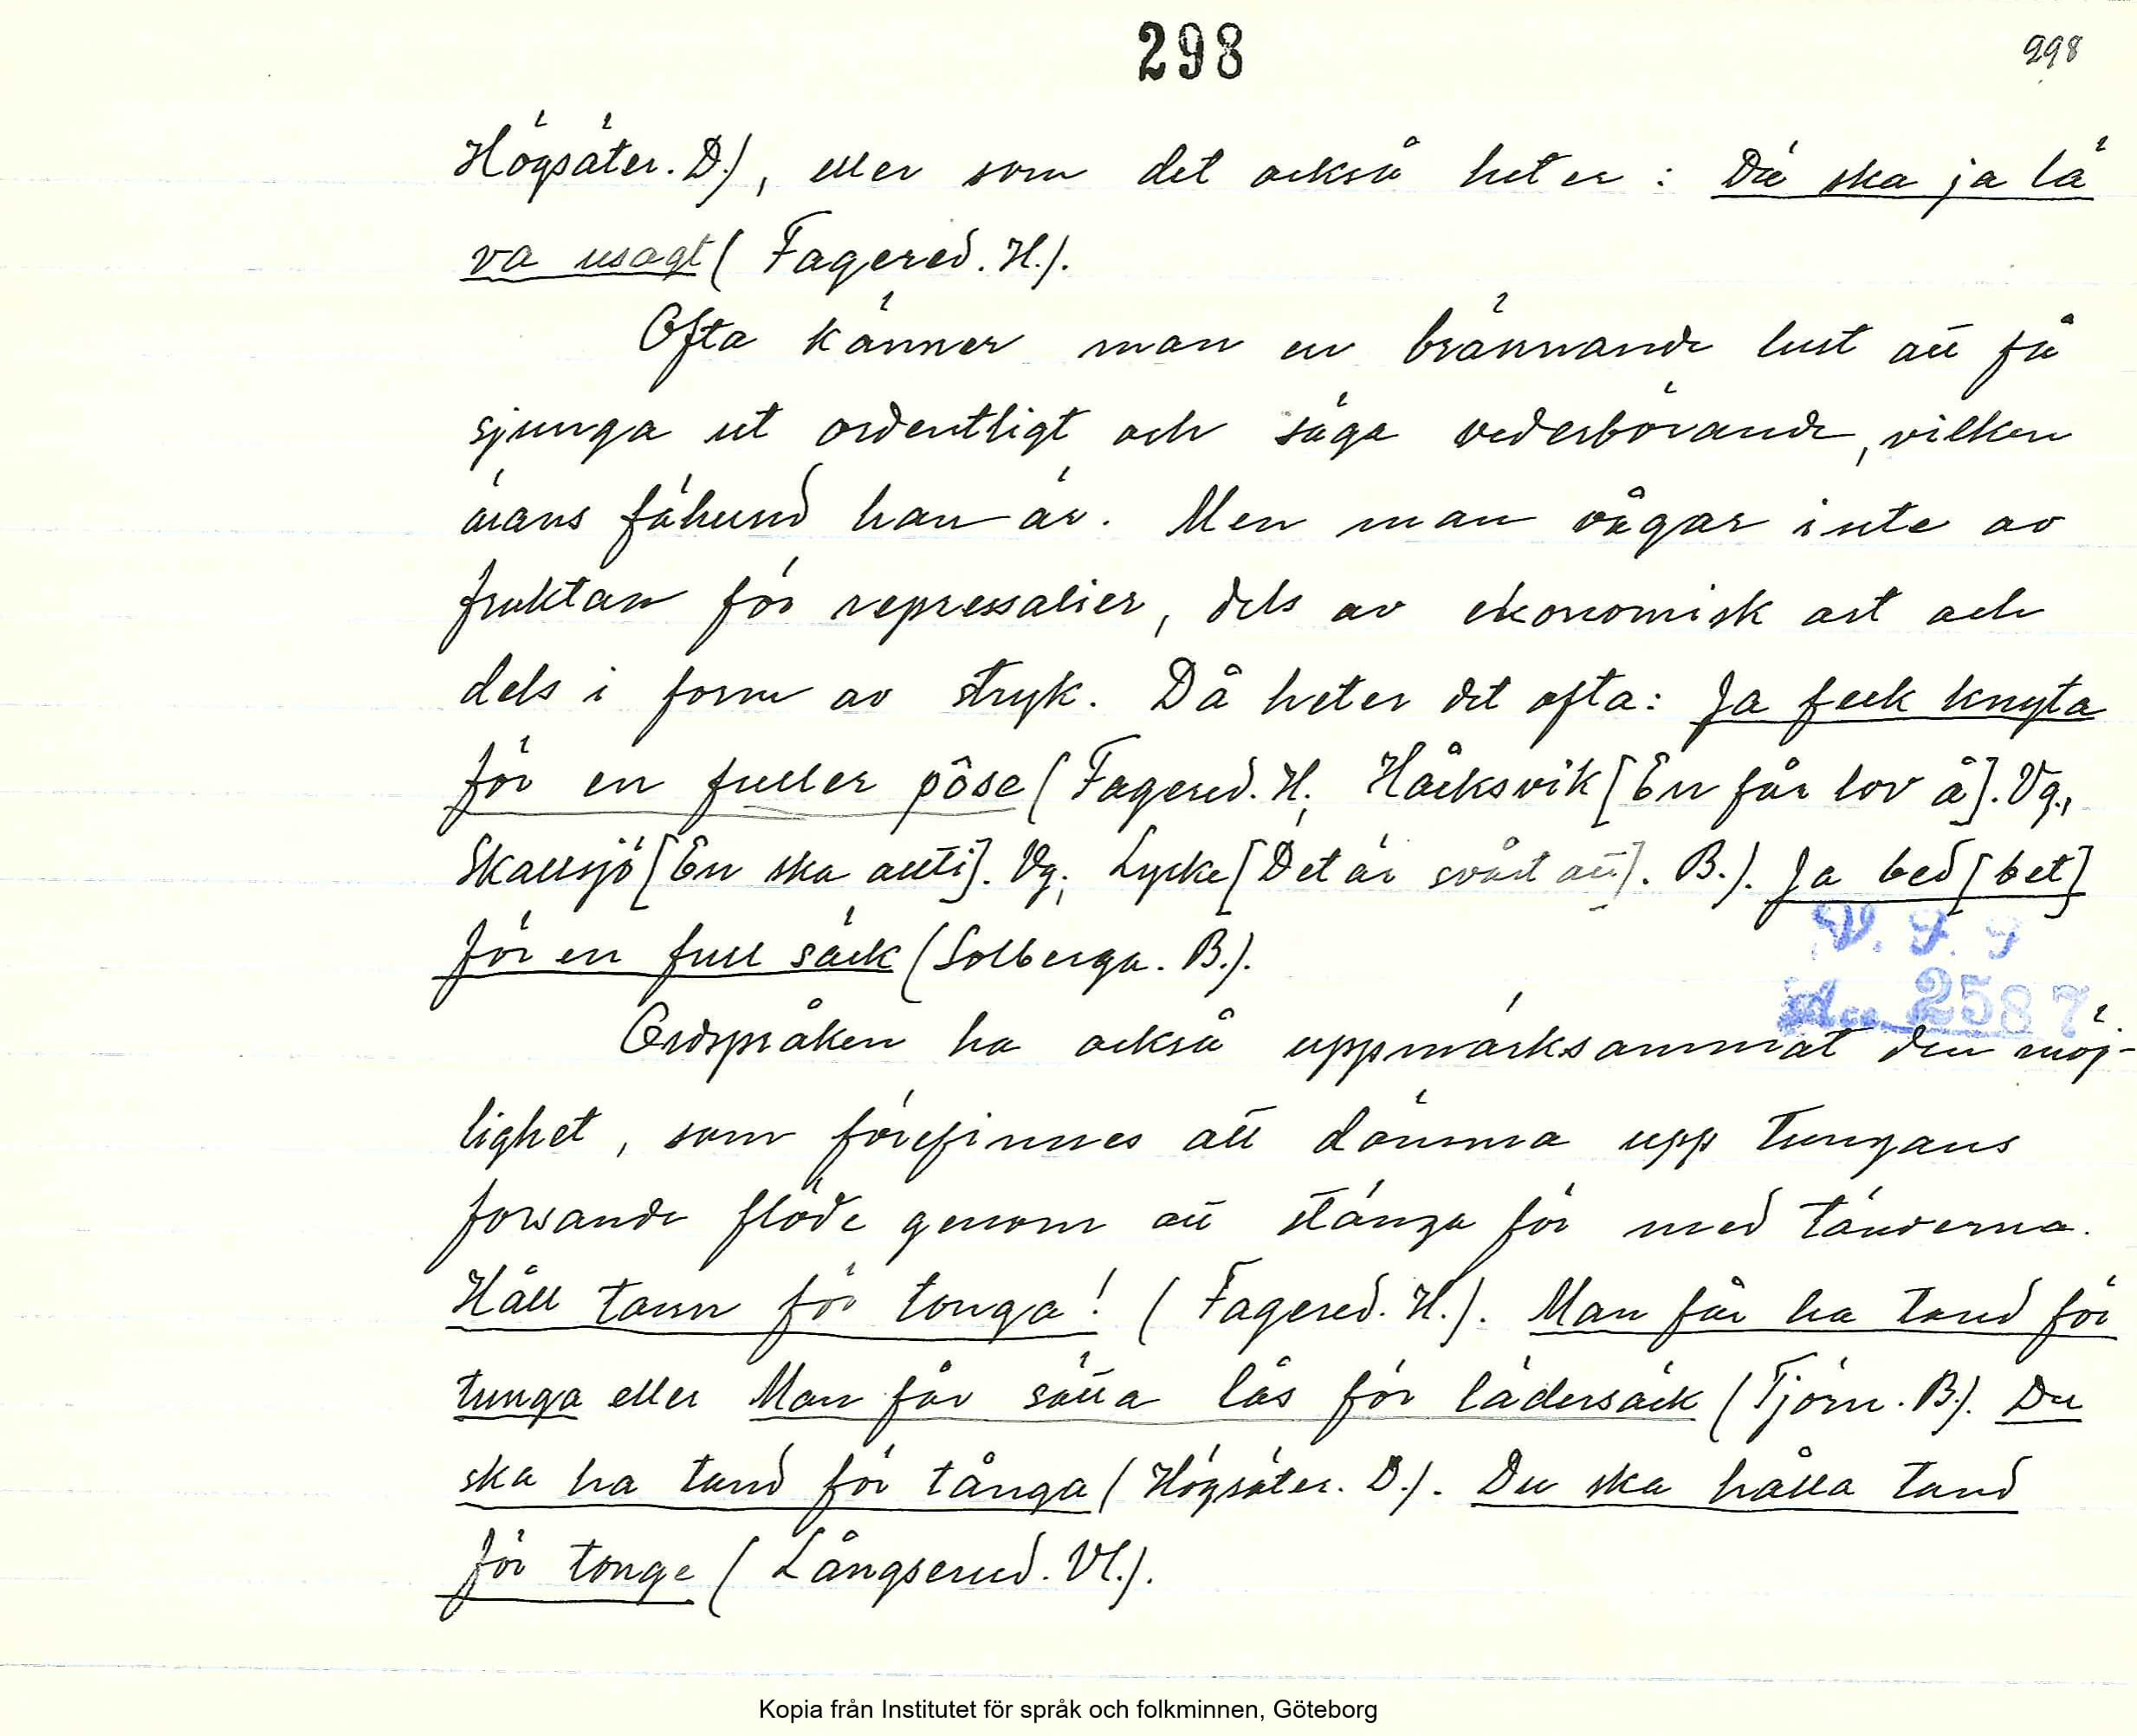 298
298
Högsäter. D.), eller som det också heter: Dä ska ja lä
va usagt (Fagered. H.).
Ofta känner man en brännande lust att få
sjunga ut ordentligt och säga vederbörande, vilken
ärans fähund han är. Men man vågar inte av
fruktan för repressalier, dels av ekonomisk art och
dels i form av stryk. Då heter det ofta: Ja feck knyta
för en fuller påse (Fagered. H; Håcksvik [En får lov å]. Vg.,
Skallsjö [En ska allti]. Vg; Lycke [Det är svårt att]. B.). Ja bed [bet]
för en full säck (Solberga. B.).
V. F. F
Acc. 2587
Ordspråken ha också uppmärksammat den möj-
lighet, som förefinnes att dämma upp tungans
forsande flöde genom att stänga för med tänderna.
Håll tann för tonga! (Fagered. H.). Man får ha tand för
tunga eller Man får sätta lås för lädersäck (Tjörn. B.). Du
ska ha tand för tånga (Högsäter. D.). Du ska hålla tand
för tonge (Långserud. Vl.).
Kopia från Institutet för språk och folkminnen, Göteborg